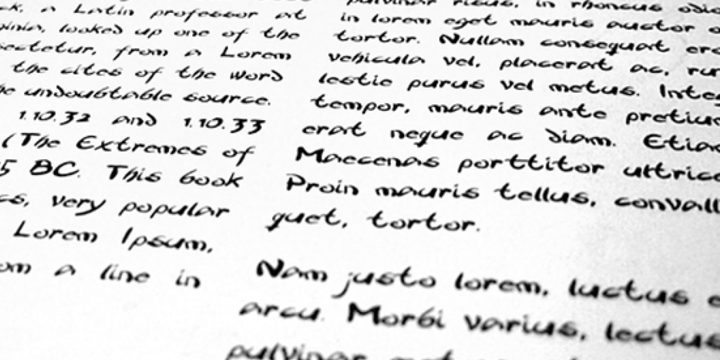 a Latin professor at
looked up one of the
from a Lorem
the cites of the word
undoubtable source.
1.10.32 and 1.10.33
(The Extremes of
BC. This book
very popular
Lorem Ipsum,
a line in
in rhoncus
in lorem eget mauris auctor
tortor. Nullam consequat
vehicula vel, placerat ac,
lestie purus vel metus.
tempor, mauris ante
erat neque ac diam.
Maecenas porttitor
Proin mauris tellus,
quet, tortor.
Nam justo lorem, luctus
arcu. Morbi varius, lectus
pulvinar